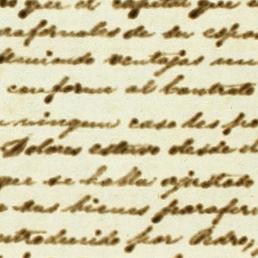 que el capital que
parafernales de su espos
ventajas mu
conforme al Contrato
ningun caso des po
Dolores estuvo desde el
que se habla ajustado
sus bienes parafer
ntroducido por Pedro,